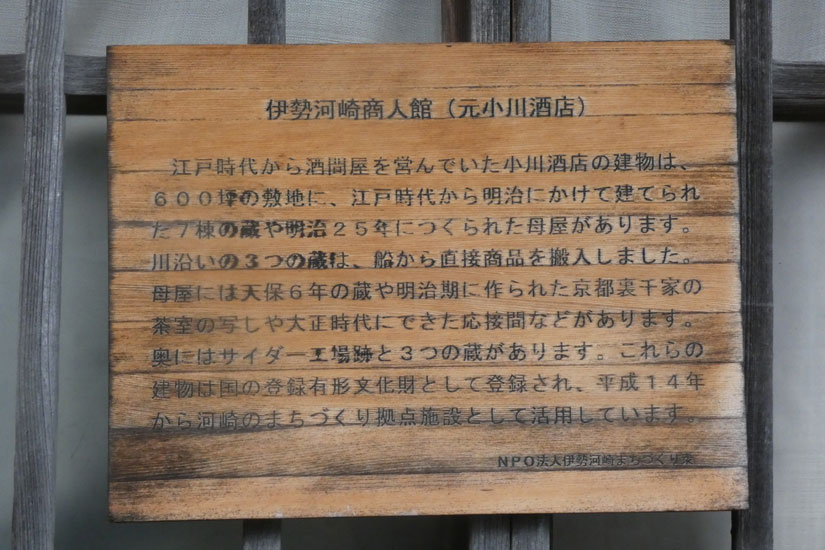 伊勢河崎商人館（元小川酒店）
江戸時代から酒問屋を営んでいた小川酒店の建物は、
６００坪の敷地に、江戸時代から明治にかけて建てられ
た７棟の蔵や明治２５年につくられた母屋があります。
川沿いの３つの蔵は、船から直接商品を搬入しました。
母屋には天保６年の蔵や明治期に作られた京都裏千家の
茶室の写しや大正時代にできた応接間などがあります。
奥にはサイダー工場跡と３つの蔵があります。これらの
建物は国の登録有形文化財として登録され、平成１４年
から河崎のまちづくり拠点施設として活用しています。
ＮＰＯ法人伊勢河崎まちづくり衆